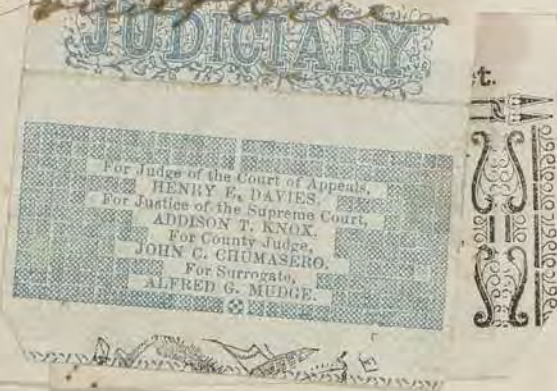 JUDICIARY
et.
For Judge of the Court of Appeals,
HENRY E. DAVIES.
For Justice of the Supreme Court,
ADDISON T. KNOX.
For County Judge,
JOHN C. CHUMASERO.
For Surrogate,
ALFRED G. MUDGE.